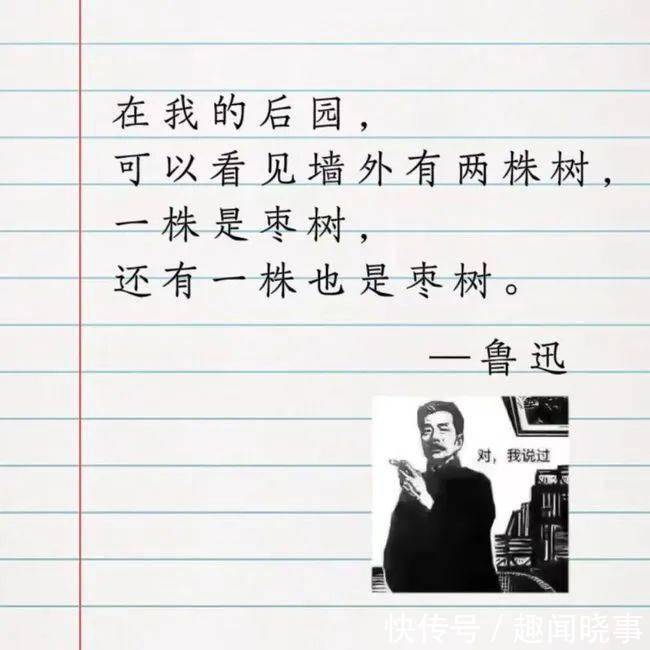 在我的后园，
可以看见墙外有两株树，
一株是枣树，
还有一株也是枣树。
—鲁迅
对，我说过
快传号 / 趣闻晓事